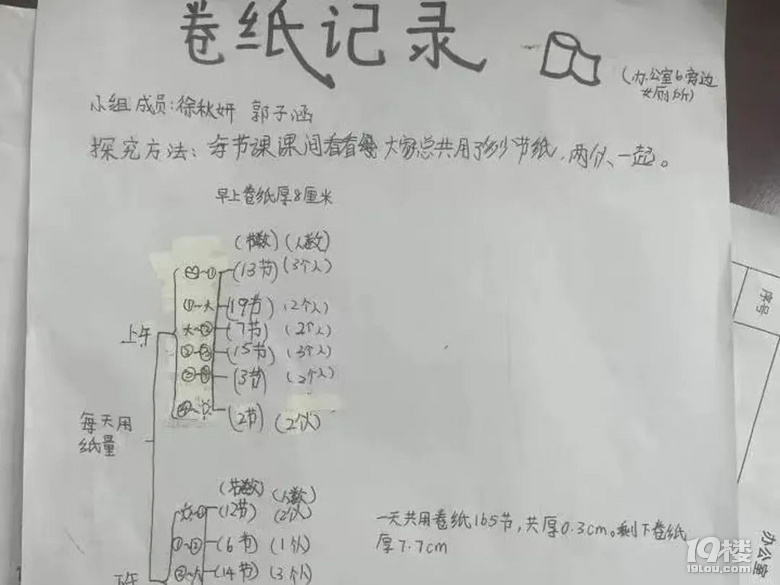 卷纸记录
(办公室6旁边
女厕所)
小组成员:徐秋妍 郭子涵
探究方法:每节课课间看看 大家总共用了多少节纸,两人一起。
早上卷纸厚8厘米
(节数) (人数)
①-(13节) (3个人)
①-大-(19节) (2个人)
大-②-(7节) (2个人)
上午
②-③-(15节) (3个人)
③-④-(3节) (2个人)
(2节) (2个人)
每天用
纸量
(节数) (人数)
(12节) (2个人)
①-②-(6节) (1个人)
②-大-(14节) (3个人)
下午
一天共用卷纸165节,共厚0.3cm。剩下卷纸
厚7.7cm
序号
办公室
19楼
19lou.com